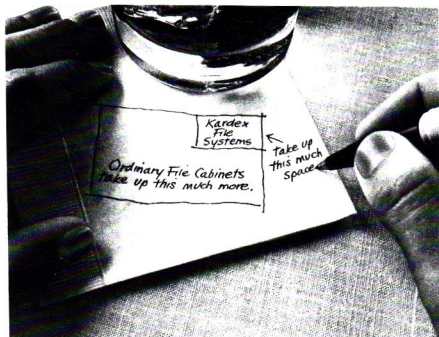 Kardex
File
Systems
take up
this much
space
Ordinary File Cabinets
take up this much more.